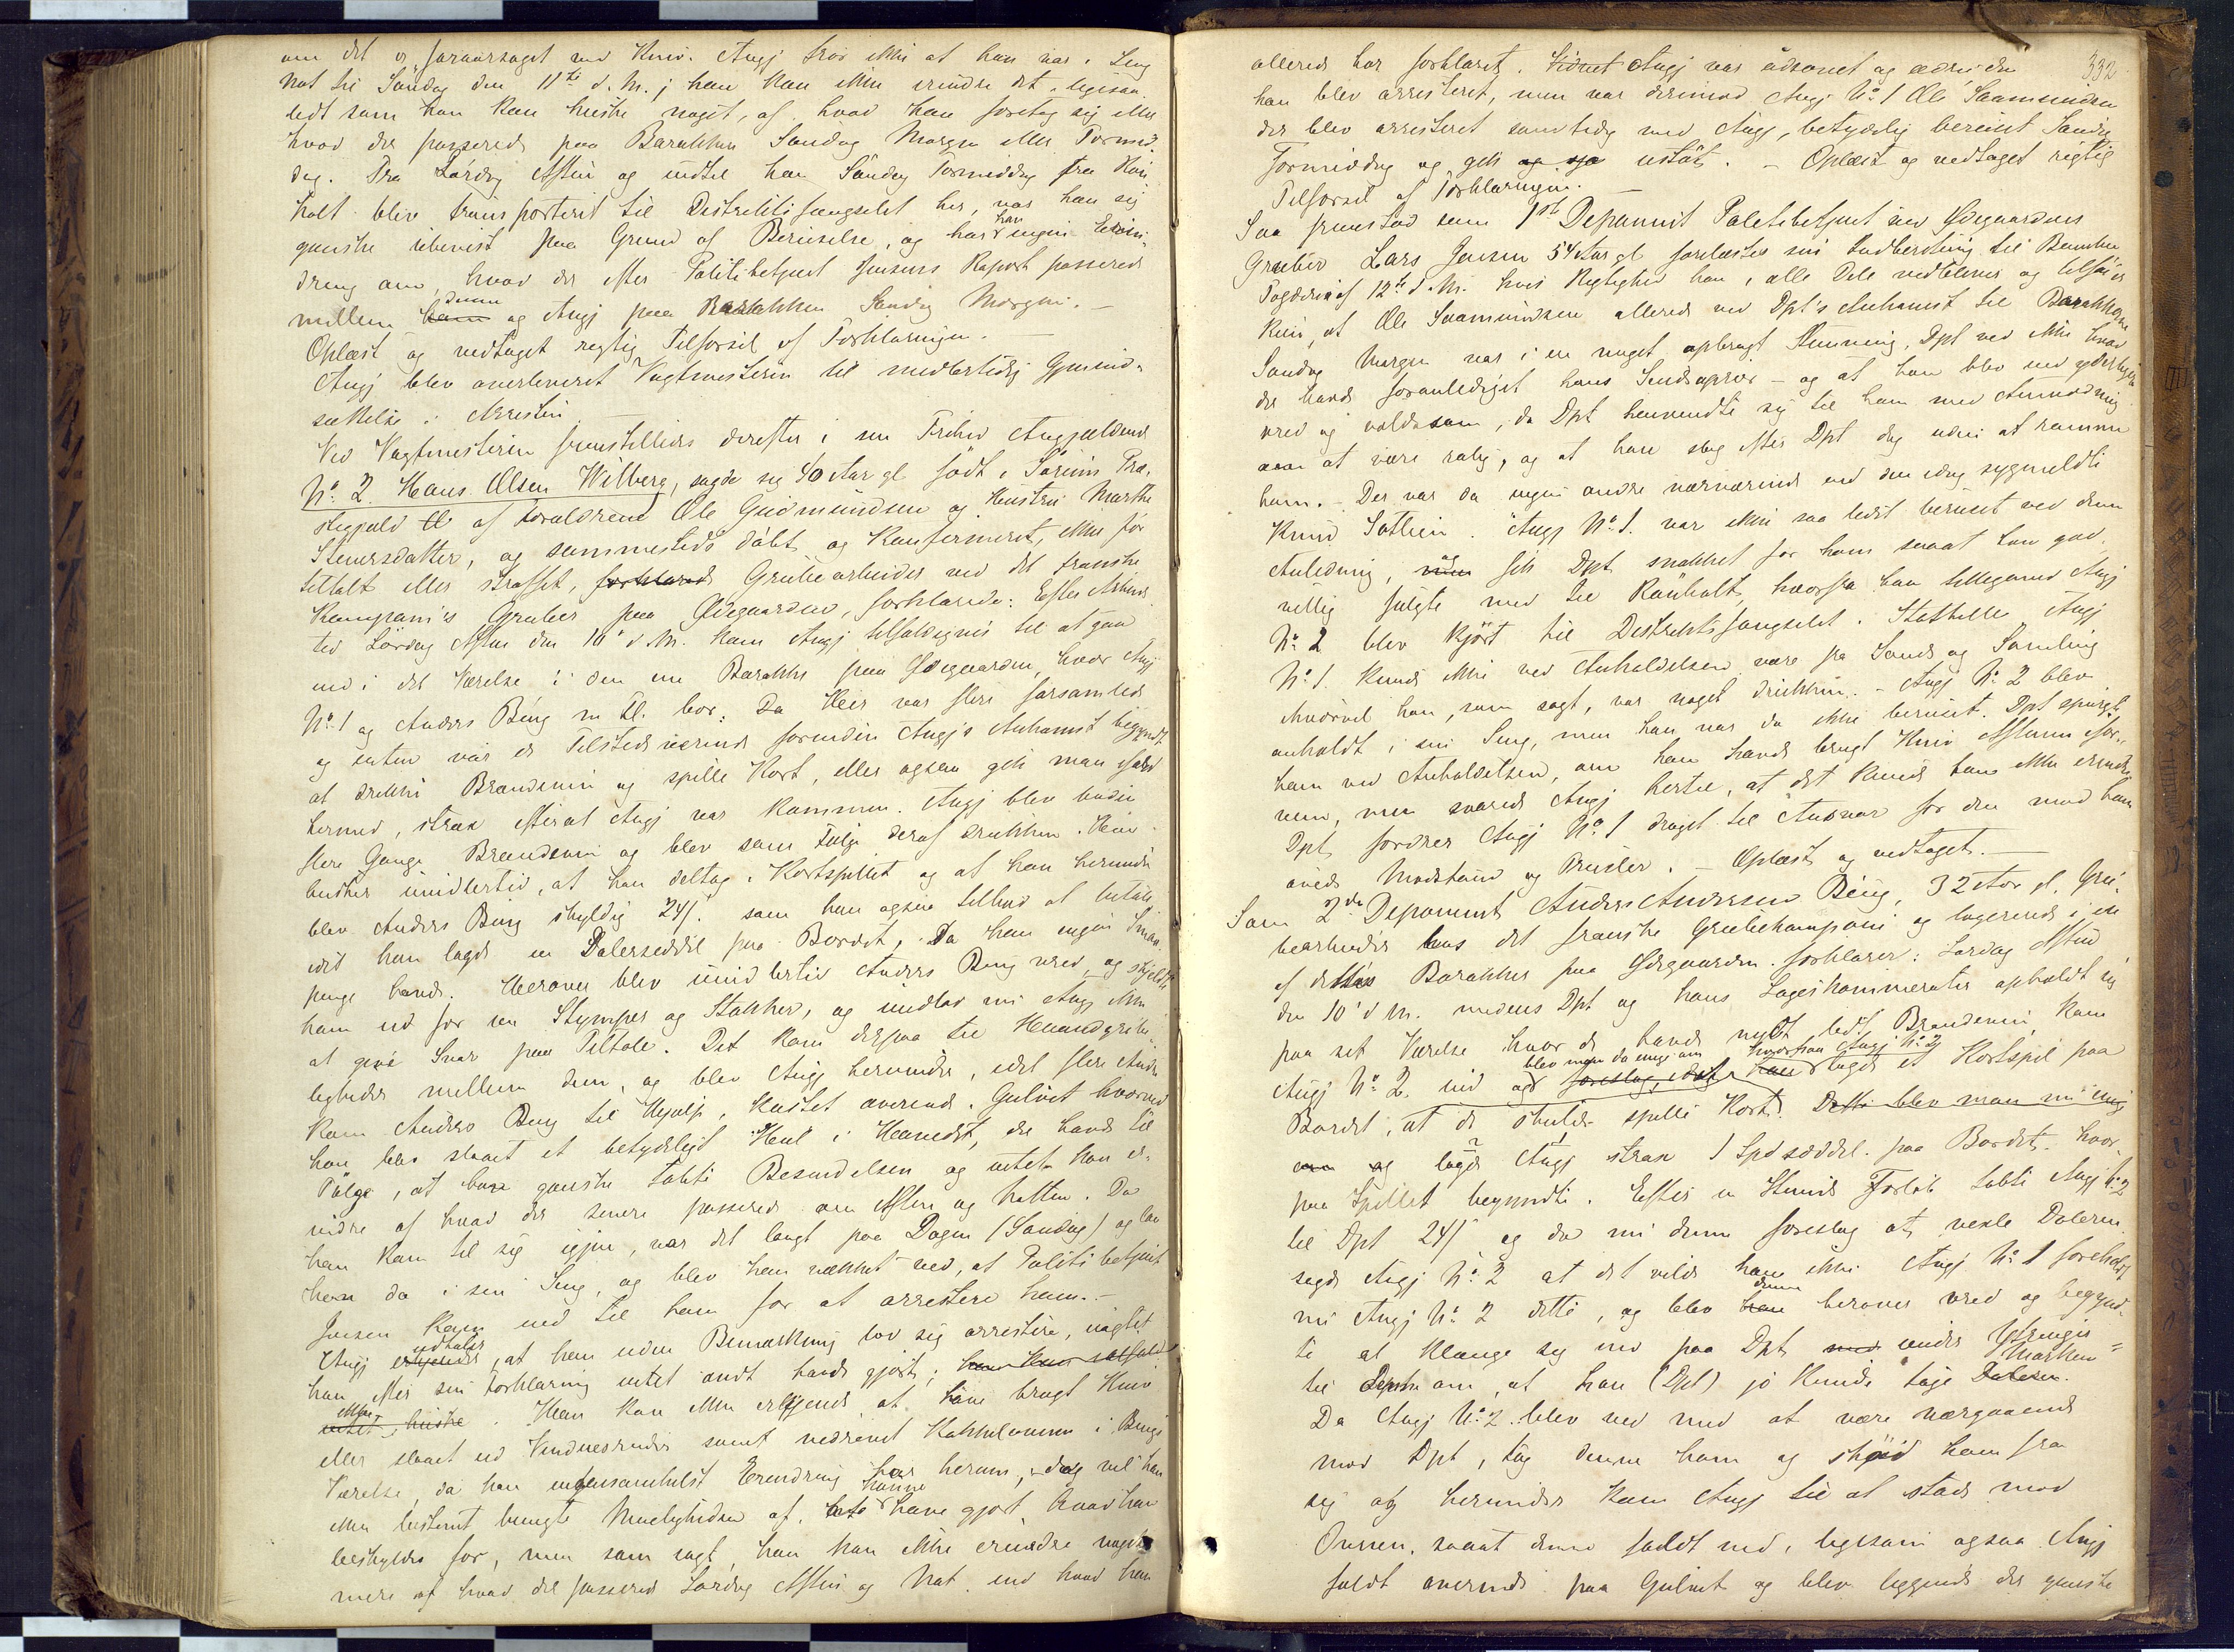 om det er foraarsaget ved Kniv. Angj troer ikke at han var i Seng
Nat til Søndag den 11te d. M.; han kan ikke erindre det, ligesaa
lidt som han kan huske noget, af hvad han foretog sig eller
hvad der passerede paa Barakken Søndag Morgen eller Formid-
dag. Fra Lørdag Aften og indtil han Søndag Formiddag fra
holt blev transporteret til Distriktsfængselet her, var han sig
ganske ubevist paa Grund af Beruselse, og har han ingen Erin-
dring om, hvad der efter Politibetjent Jensens Raport passerede
mellem ham denne og Angj paa Barakken Søndag Morgen. —
Oplæst og vedtaget rigtig Tilførsel af Forklaringen. —
Angj blev overleveret Vagtmesteren til midlertidig Gjenind-
sættelse i Arresten.
Ved Vagtmesteren fremstilledes derefter i sin Frihed Angjældende
No. 2. Hans Olsen Wilberg, sagde sig 40 Aar gl født i Sørum Præ-
stegjeld af Forældrene Ole Gudmundsen og Hustru Marthe
Steversdatter, og sammesteds døbt og Konfirmeret, ikke før
tiltalt eller straffet, forklarede Grubearbeider ved det franske
Kompani's Gruber paa Ødegaarden, forklarede: Efter Arbeids
tid Lørdag Aften den 10de d. M. kom Angj tilfældigvis til at gaa
ind i det Værelse i den ene Barakke paa Ødegaarden, hvor Angj
No. 1 og Anders Bing m fl. bor. Da Heir var flere forsamlede
og enten var de Tilstedeværende forinden Angj's Ankomst begyndt
at drikke Brændevin og spille Kort, eller ogsaa gik man ifærd
hermed, strax efterat Angj var kommen. Angj blev buden
flere Gange Brændevin og blev som Følge deraf drukken. Han
husker imidlertid, at han deltog i Kortspillet og at han herunder
blev Anders Bing skyldig 24 s. som han ogsaa tilbød at betale
idet han lagde en Dalerseddel paa Bordet, Da han ingen Smaa-
penge havde. Herover blev imidlertid Anders Bing vred og skjeldte
ham ud for en Stymper og Stakker, og undlod nu Angj ikke
at give Svar paa Tiltale. Det kom derpaa til Haandgribe-
ligheder mellem dem, og blev Angj herunder, idet flere Andre
kom Anders Bing til Hjælp, kastet overende i Gulvet hvorved
han blev slaaet et betydeligt Hul i Hovedet, der havde til
Følge, at han ganske tabte Besindelsen og intet kan er-
indre af hvad der senere passerede om Aften og Natten. Da
han kom til sig igjen, var det langt paa Dagen (Søndag) og laa
han da i sin Seng, og blev han vækket ved, at Politibetjent
Jensen kom ned til ham for at arrestere ham. —
Angj udtaler, at han uden Bemærkning lod sig arrestere, uagtet
han efter sin Forklaring intet ondt havde gjort;
intet huske. Han kan ikke erkjende at have brugt Kniv
eller slaaet ud Vinduesruder samt nedrevet Kakkelovnen i Bings
Værelse, da han ingensomhelst Erindring har herom, dog vil han
ikke bestemt benægte Muligheden af kunne have gjort, hvad han
beskyldes for, men som sagt, han kan ikke erindre noget
mere af hvad der passerede Lørdag Aften og Nat, end hvad han
332
allerede har forklaret. Vidnet Angj var udsovet og ædru da
han blev arresteret, men var derimod Angj No. 1 Ole Saamundsen
der blev arresteret samtidig med Angj, betydelig beruset Søndag
Formiddag og gik ustøt. — Oplæst og vedtaget rigtig
Tilførsel af Forklaringen. —
Saa fremstod som 1ste Deponent Politibetjent ved Ødegaardens
Gruber Lars Jensen 54 Aar gl forelæstes sin Indberetning til Bamble
Fogderi af 12te d. M. hvis Rigtighed han i alle Dele vedkjender og tilføier
kun, at Ole Saamundsen allerede ved Dpt's Ankomst til Barakkerne
Søndag Morgen var i en noget opbragt Stemning, Dpt ved ikke hvad
der havde foranlediget hans Sindsoprør — og at han blev end yderligere
vred og voldsom, da Dpt henvendte sig til ham med Anmodning
om at være rolig, og at han slog efter Dpt dog uden at ramme
ham. — Der var da ingen andre nærværende end den idag sygmeldte
Knud Satlien. Angj No. 1. var ikke saa lidet beruset ved denne
Anledning, og fik Dpt snakket for ham saaat han god-
villig fulgte med til Rønholt, hvorfra han tilligemed Angj
No. 2 blev kjørt til Distriktsfængselet.
No. 1. kunde ikke ved Anholdelsen være fra Sands og Samling
hvorvel han, som sagt, var noget drukken. — Angj No. 2 blev
anholdt i sin Seng, men han var da ikke beruset. Dpt spurgte
ham ved Anholdelsen, om han havde brugt Kniv Aftenen for-
men svarede Angj hertil, at det kunde han ikke erindre
Dpt fordrer Angj No. 1 draget til Ansvar for den mod ham
øvede Modstand og Trusler. — Oplæst og vedtaget. —
Som 2den Deponent Anders Andersen Bing, 32 Aar gl. Gru-
bearbeider hos det franske Grubekompani og logerende i en
af dettes Barakker paa Ødegaarden. forklarer: Lørdag Aften
den 10de d M. medens Dpt og hans Logiskammerater opholdt sig
paa sit Værelse hvor de havde nydt lidt Brændevin, kom
Angj No. 2. ind og blev man da enig om hvorfra Angj No. 2 lagde et Kortspil paa
Bordet, at de skulde spille Kort. Dette blev man nu enig
om og lagde Angj strax 1 Spd seddel. paa Bordet. hvor-
paa Spillet begyndte. Efter en Stunds Forløb tabte Angj No. 2
til Dpt 24 s og da nu denne foreslog at vexle Daleren
sagde Angj No. 2 at det vilde han ikke Angj No. 1 foreholdt
nu Angj No. 2 dette, og blev denne herover vred og begynd-
te at klænge sig ind paa Dpt under Ytringer
til om, at han (Dpt) jo kunde tage Marken
Da Angj No. 2. blev ved med at være nærgaaende
mod Dpt, tog denne ham og skjød ham fra
sig og herunder kom Angj til at støde mod
Ovnen, saaat denne faldt ned, ligesom ogsaa Angj
faldt overende paa Gulvet og blev liggende der ganske